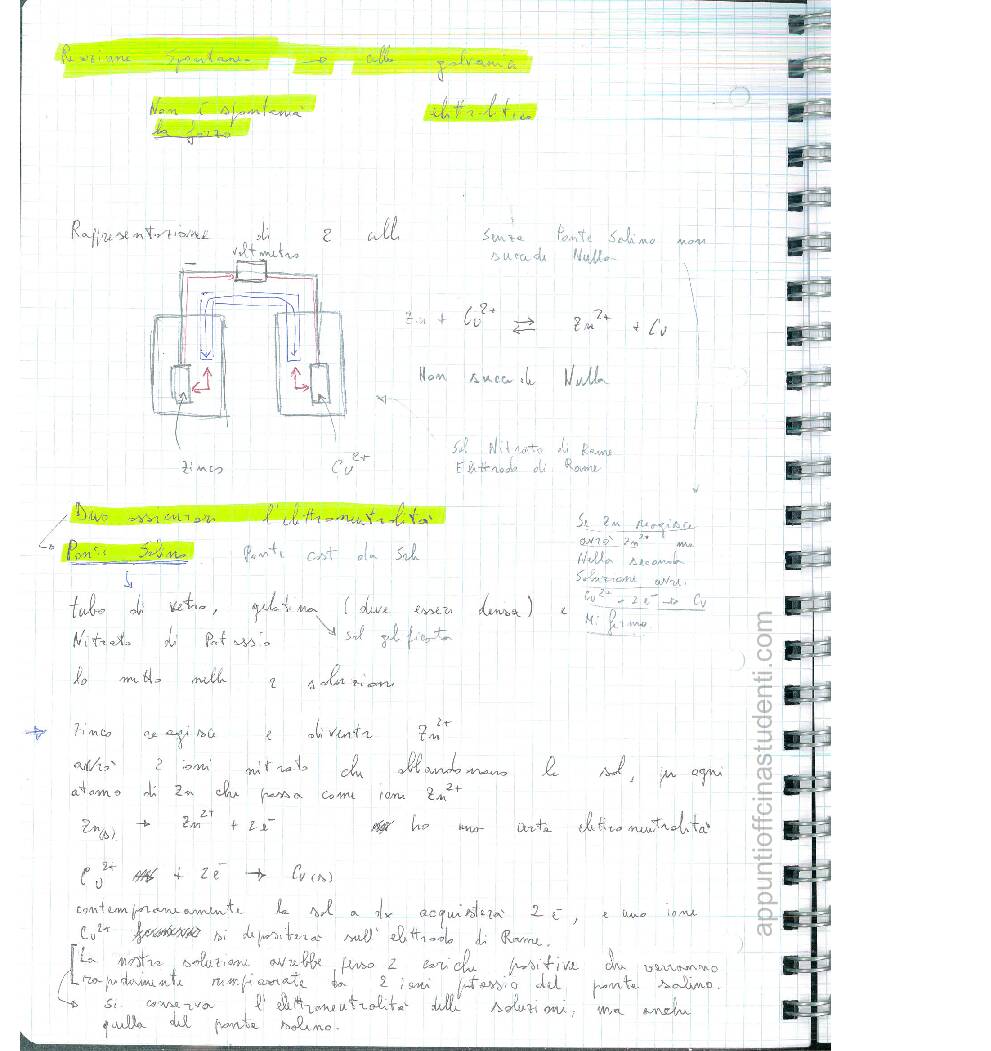 Reazione Spontanea → cella galvanica
Non è spontanea elettrolitica
la forzo
Rappresentazione di 2 celle
Senza Ponte Salino non
succede Nulla
voltmetro
Zn + Cu²⁺ ⇄ Zn²⁺ + Cu
Non succede Nulla
Sol Nitrato di Rame
Elettrodo di Rame
Zinco Cu²⁺
Devo assicurare l'elettroneutralità
Ponte Salino Ponte cost da Sol
Se Zn reagisce
avrò Zn²⁺ ma
Nella seconda
Soluzione avrei
Cu²⁺ + 2e⁻ → Cu
Mi fermo
tubo di vetro, gelatina (deve essere densa) e
Nitrato di Potassio sol gelificata
lo metto nelle 2 soluzioni
→ Zinco reagisce e diventa Zn²⁺
avrò 2 ioni nitrato che abbandonano la sol, per ogni
atomo di Zn che passa come ione Zn²⁺
Zn(s) → Zn²⁺ + 2e⁻ ho una certa elettroneutralità
Cu²⁺ + 2e⁻ → Cu(s)
contemporaneamente la sol a dx acquisterà 2e⁻, e uno ione
Cu²⁺ si depositerà sull'elettrodo di Rame.
La nostra soluzione avrebbe perso 2 cariche positive che verranno
rapidamente rimpiazzate da 2 ioni potassio del ponte salino.
Si conserva l'elettroneutralità delle soluzioni, ma anche
quella del ponte salino.
appuntioffcinastudenti.com